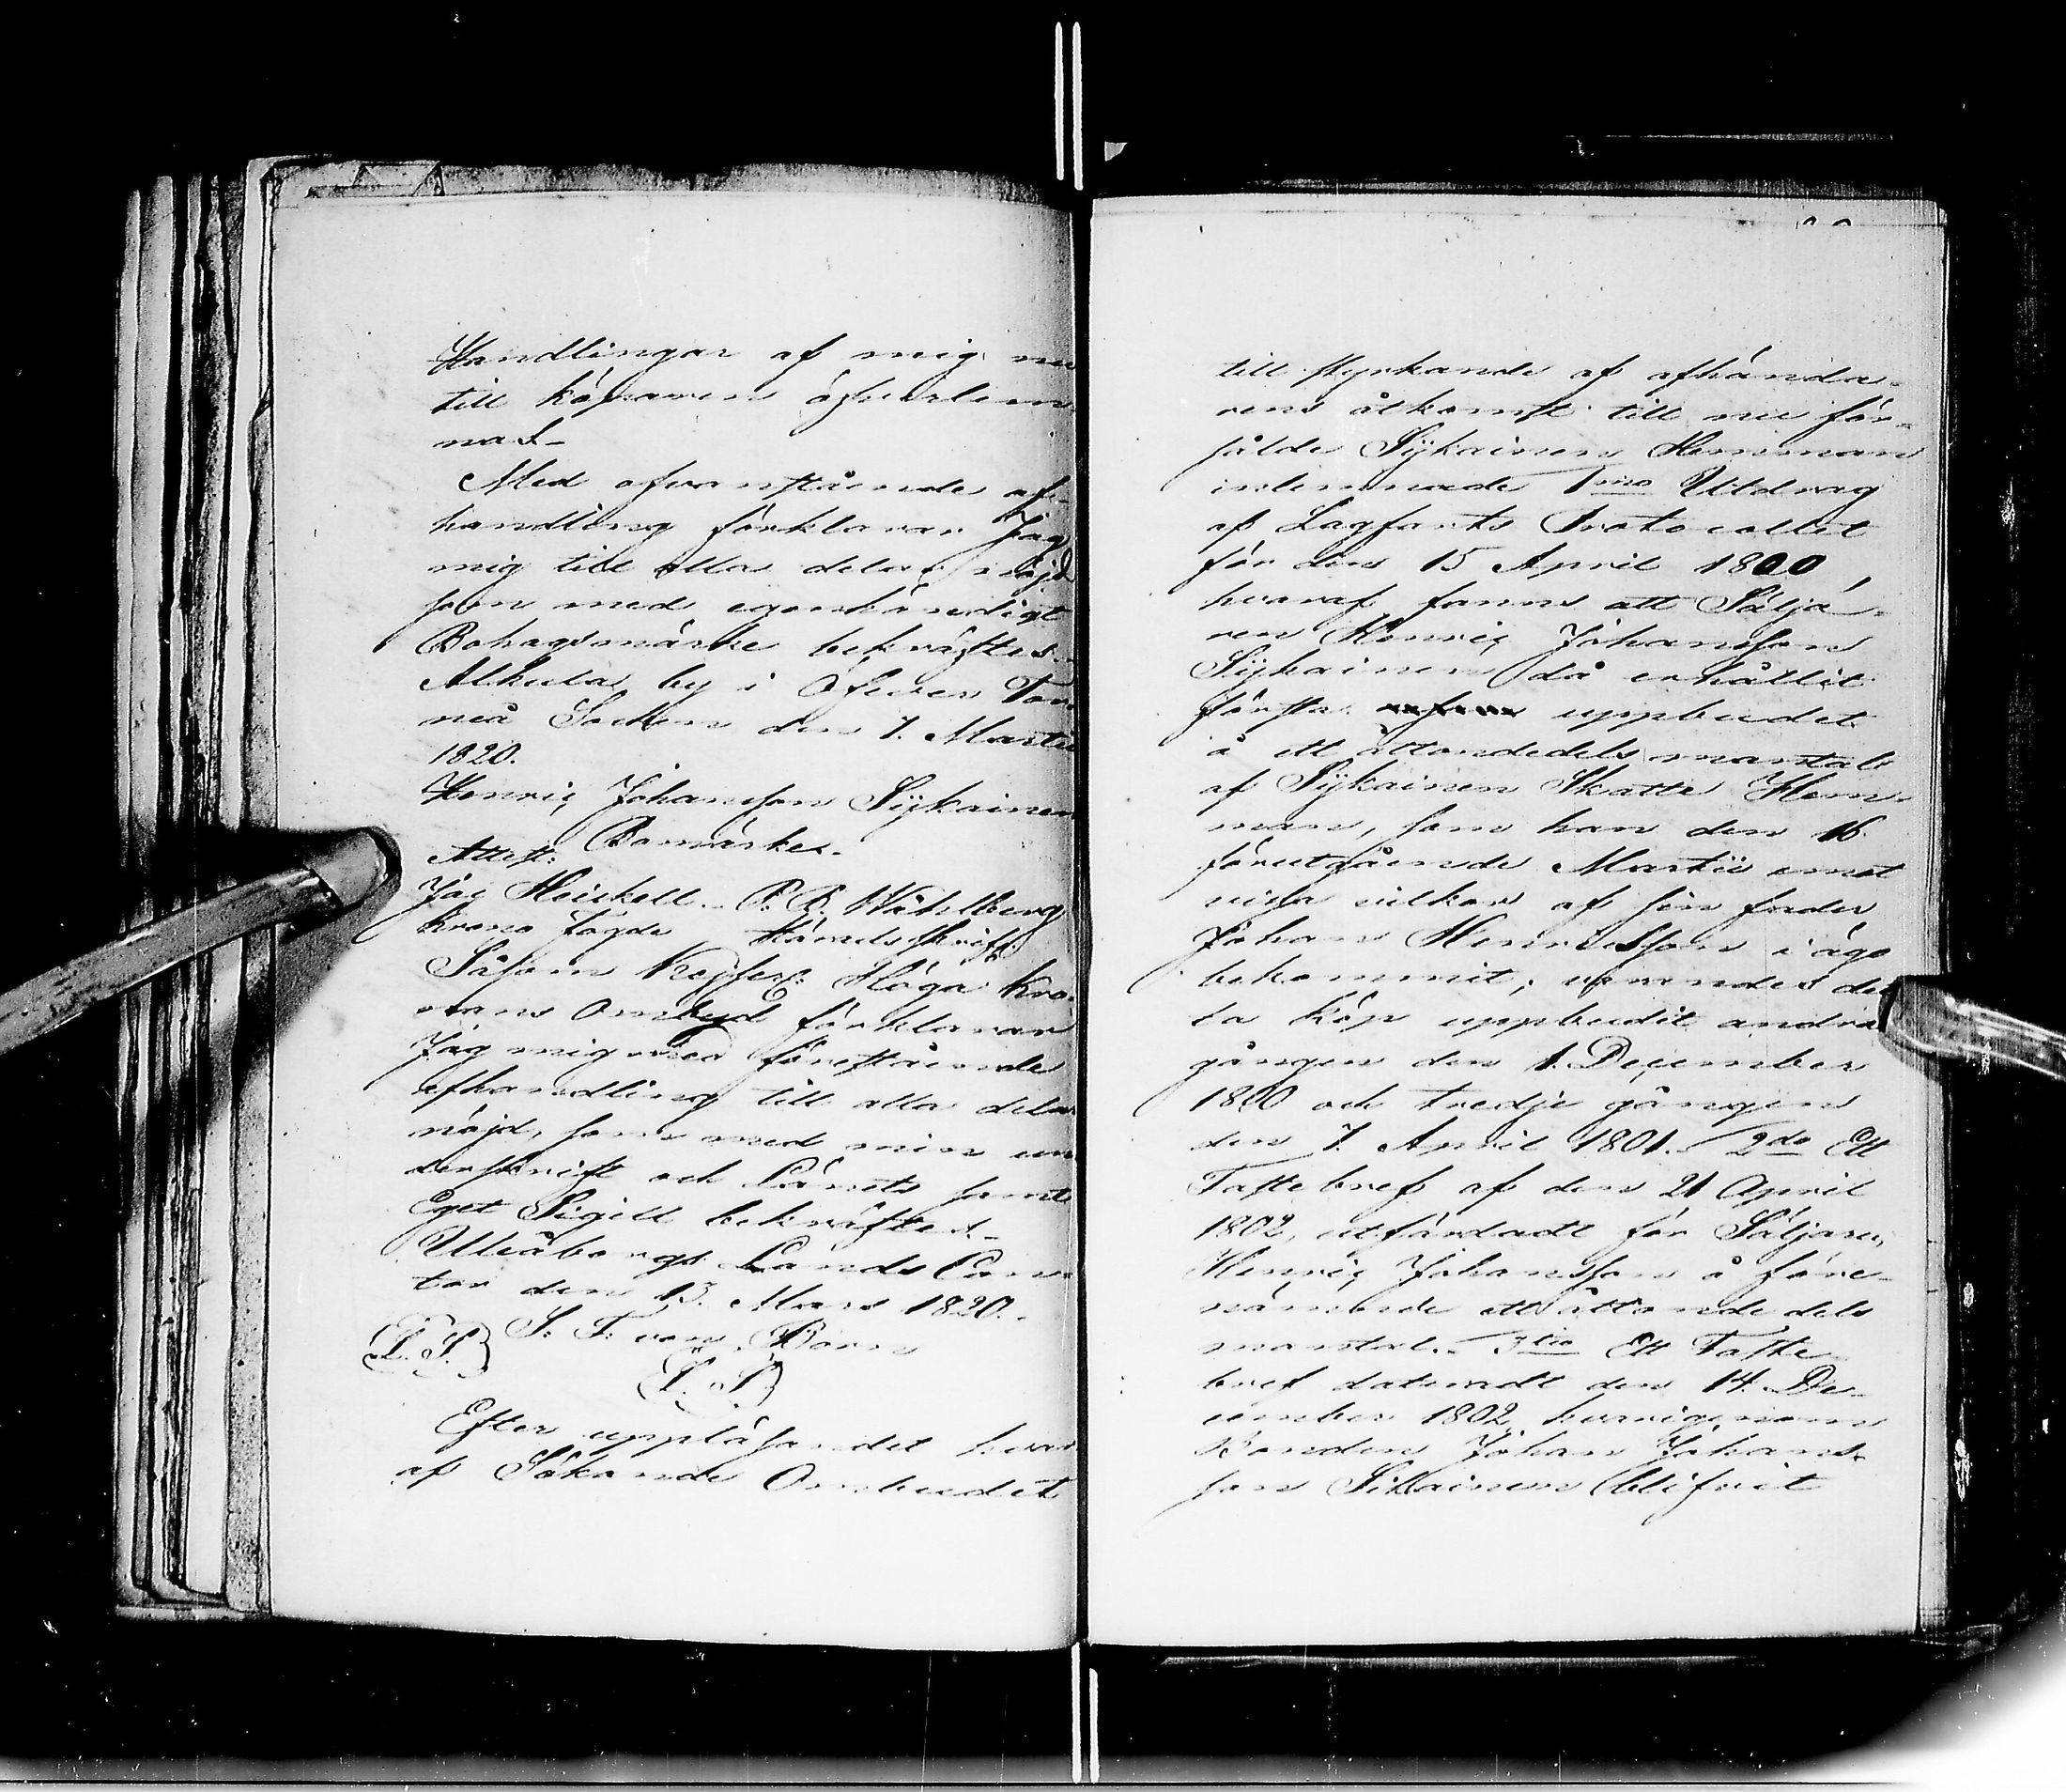 Handlingar af mig nu
till köparen öfverlem
nas.
Med ofvanstående af-
handling förklarar Jag
mig till alla delar nöjd
som med egenhändigt
Bohagsmärke bekräftes.
Alkula by i Öfver Tor
neå Socken den 7. Martii
1820.
Henric Johansson Sÿkainen
Bomärke.
Attest:
Jac Heickell. P. B. Wählberg
Krono Fogde Häradsskrif:
Såsom Kejserl: Höga Kro-
nans Ombud förklarar
Jag mig med förestående
afhandling till alla delar
nöjd, som med min un
derskrift och Länets samt
Eget Sigill bekräftes.
Uleåborgs Lands Can
tor den 13. Mars 1820.
(L. S.) S: F: von Born
(L. S.)
Efter uppläsandet hvar
af Sökande Ombudet
till styrkande af afhända-
rens åtkomst till nu för-
sålde Sÿkainen Hemman
inlemnade 1mo Utdrag
af Lagfarts Protocollet
för den 15 April 1800
hvaraf fanns att Säljа-
ren Henric Johansson
Sÿkainen då erhållit
första uppbudet
å ett åttondedels mantal
af Sÿkainen Skatte Hem-
man, som han den 16
förutgående Martii emot
vissa vilkor af sin fader
Johan Henricsson i ägo
bekommit; varandes det
ta Köp uppbudit andra
gången den 1. December
1800 och tredje gången
den 7. April 1801. 2do Ett
Fastebref af den 21 April
1802, utfärdadt för Säljaren
Henric Johansson å före-
nämnde ett åttonde dels
mantal. 3tio Ett Faste
bref dateradt den 14. De-
cember 1802 hvarigenom
Bonden Johan Johans-
son Sikainen blifvit